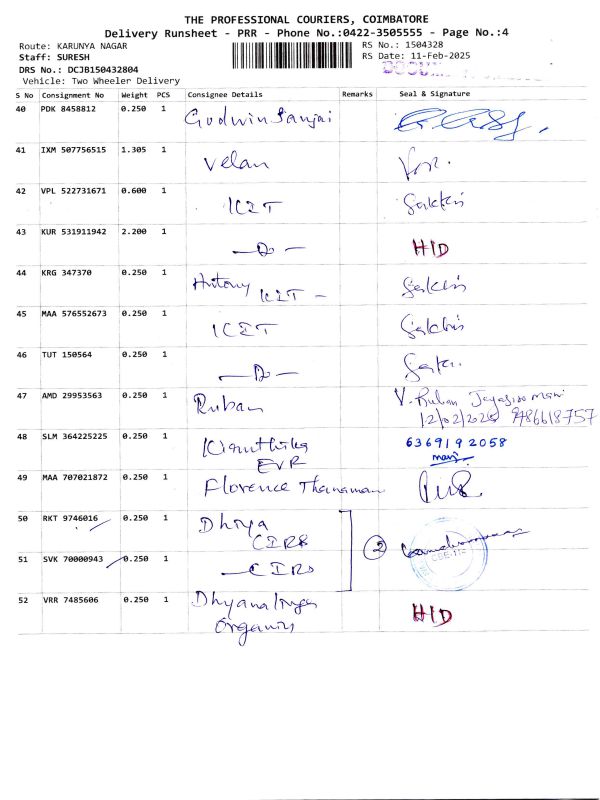 THE PROFESSIONAL COURIERS, COIMBATORE
Delivery Runsheet - PRR - Phone No.:0422-3505555 - Page No.:4
Route: KARUNYA NAGAR
RS No.: 1504328
Staff: SURESH
RS Date: 11-Feb-2025
DRS No.: DCJB150432804
Vehicle: Two Wheeler Delivery
S No Consignment No Weight PCS Consignee Details Remarks Seal & Signature
40 PDK 8458812 0.250 1 Godwin Sanjai
41 IXM 507756515 1.305 1 Velan
42 VPL 522731671 0.600 1 ICIT Sakthi
43 KUR 531911942 2.200 1 —Do— HID
44 KRG 347370 0.250 1 Antony ICIT - Sakthi
45 MAA 576552673 0.250 1 ICIT Sakthi
46 TUT 150564 0.250 1 —Do—
47 AMD 29953563 0.250 1 Ruban V. Ruban
12/02/2025 9486618757
48 SLM 364225225 0.250 1 Keerthika 6369192058
EVR mani
49 MAA 707021872 0.250 1 Florence
50 RKT 9746016 0.250 1 Dhiya
CIRS
2
51 SVK 70000943 0.250 1 —CIRS
52 VRR 7485606 0.250 1 Dhyanalinga HID
Organis